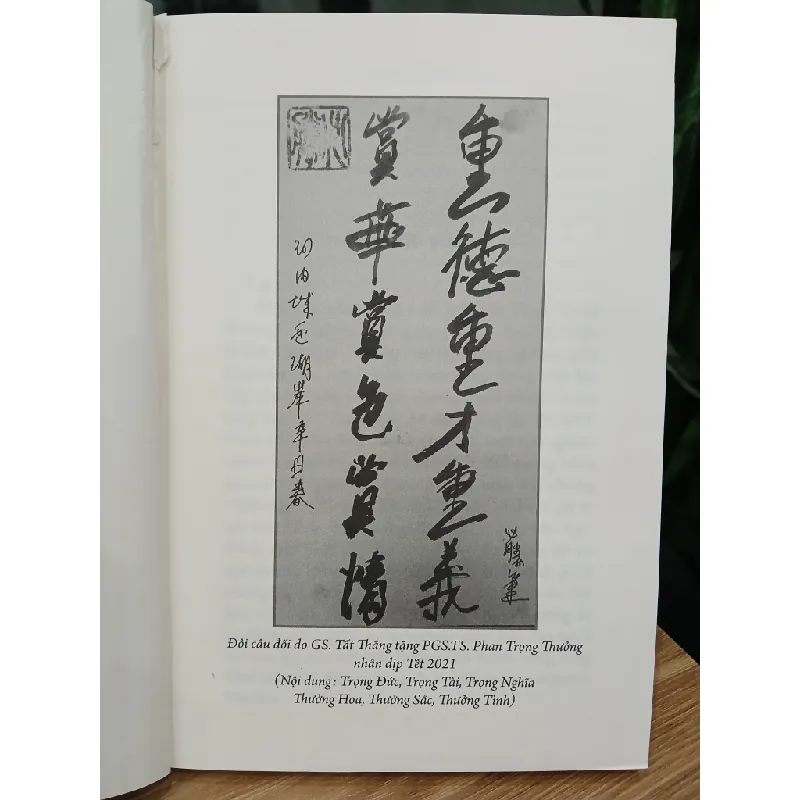 重德重才重義
必勝書
賞華賞色賞情
辛丑春
Đôi câu đối do GS. Tất Thắng tặng PGS.TS. Phan Trọng Thưởng
nhân dịp Tết 2021
(Nội dung: Trọng Đức, Trọng Tài, Trọng Nghĩa
Thưởng Hoa, Thưởng Sắc, Thưởng Tình)